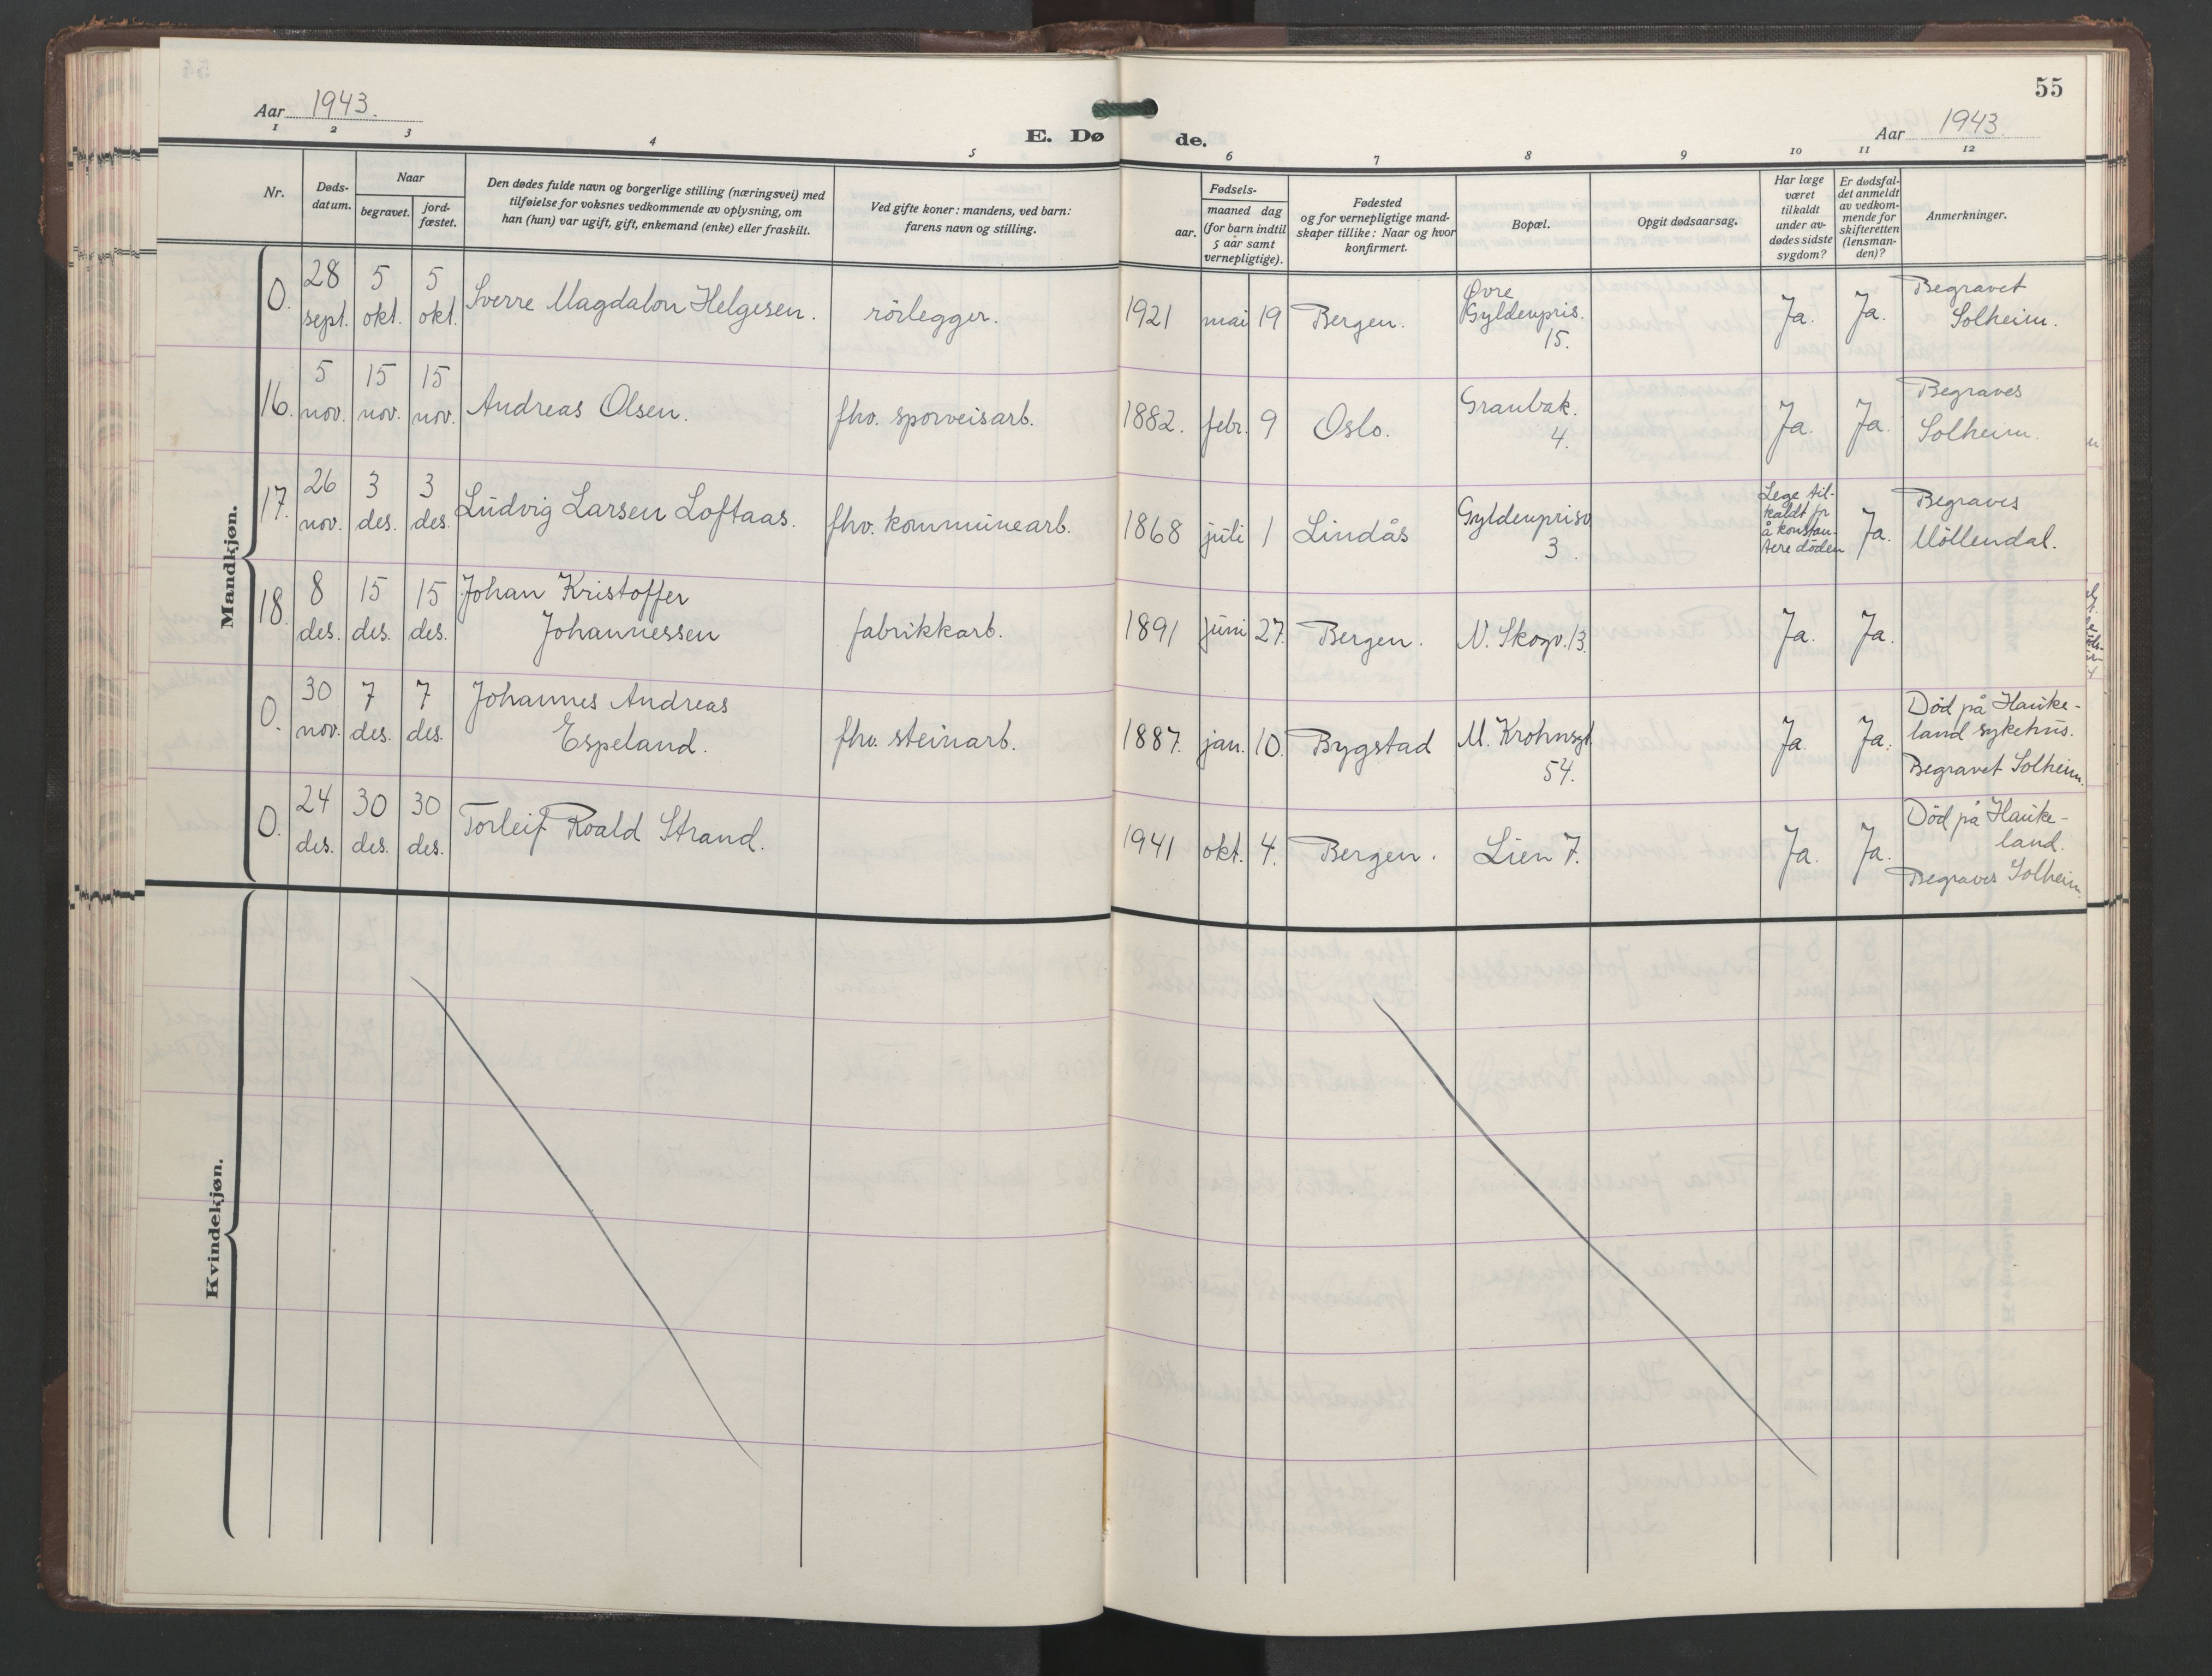 55
Aar 1943.
E. Døde.
Aar 1943.
1 2 3 4 5 6 7 8 9 10 11 12
Nr.
Døds-
datum.
Naar
begravet.
jord-
fæstet.
Den dødes fulde navn og borgerlige stilling (næringsvei) med
tilføielse for voksnes vedkommende av oplysning, om
han (hun) var ugift, gift, enkemand (enke) eller fraskilt.
Ved gifte koner: mandens, ved barn:
farens navn og stilling.
Fødsels-
aar.
maaned dag
(for barn indtil
5 aar samt
vernepligtige).
Fødested
og for vernepligtige mand-
skaper tillike: Naar og hvor
konfirmert.
Bopæl.
Opgit dødsaarsag.
Har læge
været
tilkaldt
under av-
dødes sidste
sygdom?
Er dødsfal-
det anmeldt
av vedkom-
mende for
skifteretten
(lensman-
den)?
Anmerkninger.
Mandkjøn.
0. 28 sept. 5 okt. 5 okt. Sverre Magdalon Helgesen. rörlegger. 1921 mai 19 Bergen. Øvre
Gyldenpris.
15. Ja. Ja. Begravet
Solheim.
16. 5 nov. 15 nov. 15 nov. Andreas Olsen. fhv. sporveisarb. 1882. febr. 9 Oslo. Granbak.
4. Ja. Ja. Begraves
Solheim.
17. 26 nov. 3 des. 3 des. Ludvig Larsen Loftaas. fhv. kommunearb. 1868 juli 1 Lindås Gyldenprisv
3. Lege til-
kaldt fr
å konstan-
tere döden Ja. Begraves
Möllendal.
18. 8 des. 15 des. 15 des. Johan Kristoffer
Johannessen fabrikkarb. 1891 juni 27. Bergen. N. Skogv. 13. Ja. Ja.
0. 30 nov. 7 des. 7 des. Johannes Andreas
Espeland. fhv. steinarb. 1887. jan. 10. Bygstad M. Krohnsgt.
54. Ja. Ja. Död på Hauke-
land sykehus.
Begravet Solheim.
0. 24 des. 30 des. 30 des. Torleif Roald Strand. 1941 okt. 4. Bergen. Lien 7. Ja. Ja. Död på Hauke-
land.
Begraves Solheim.
Kvindekjøn.